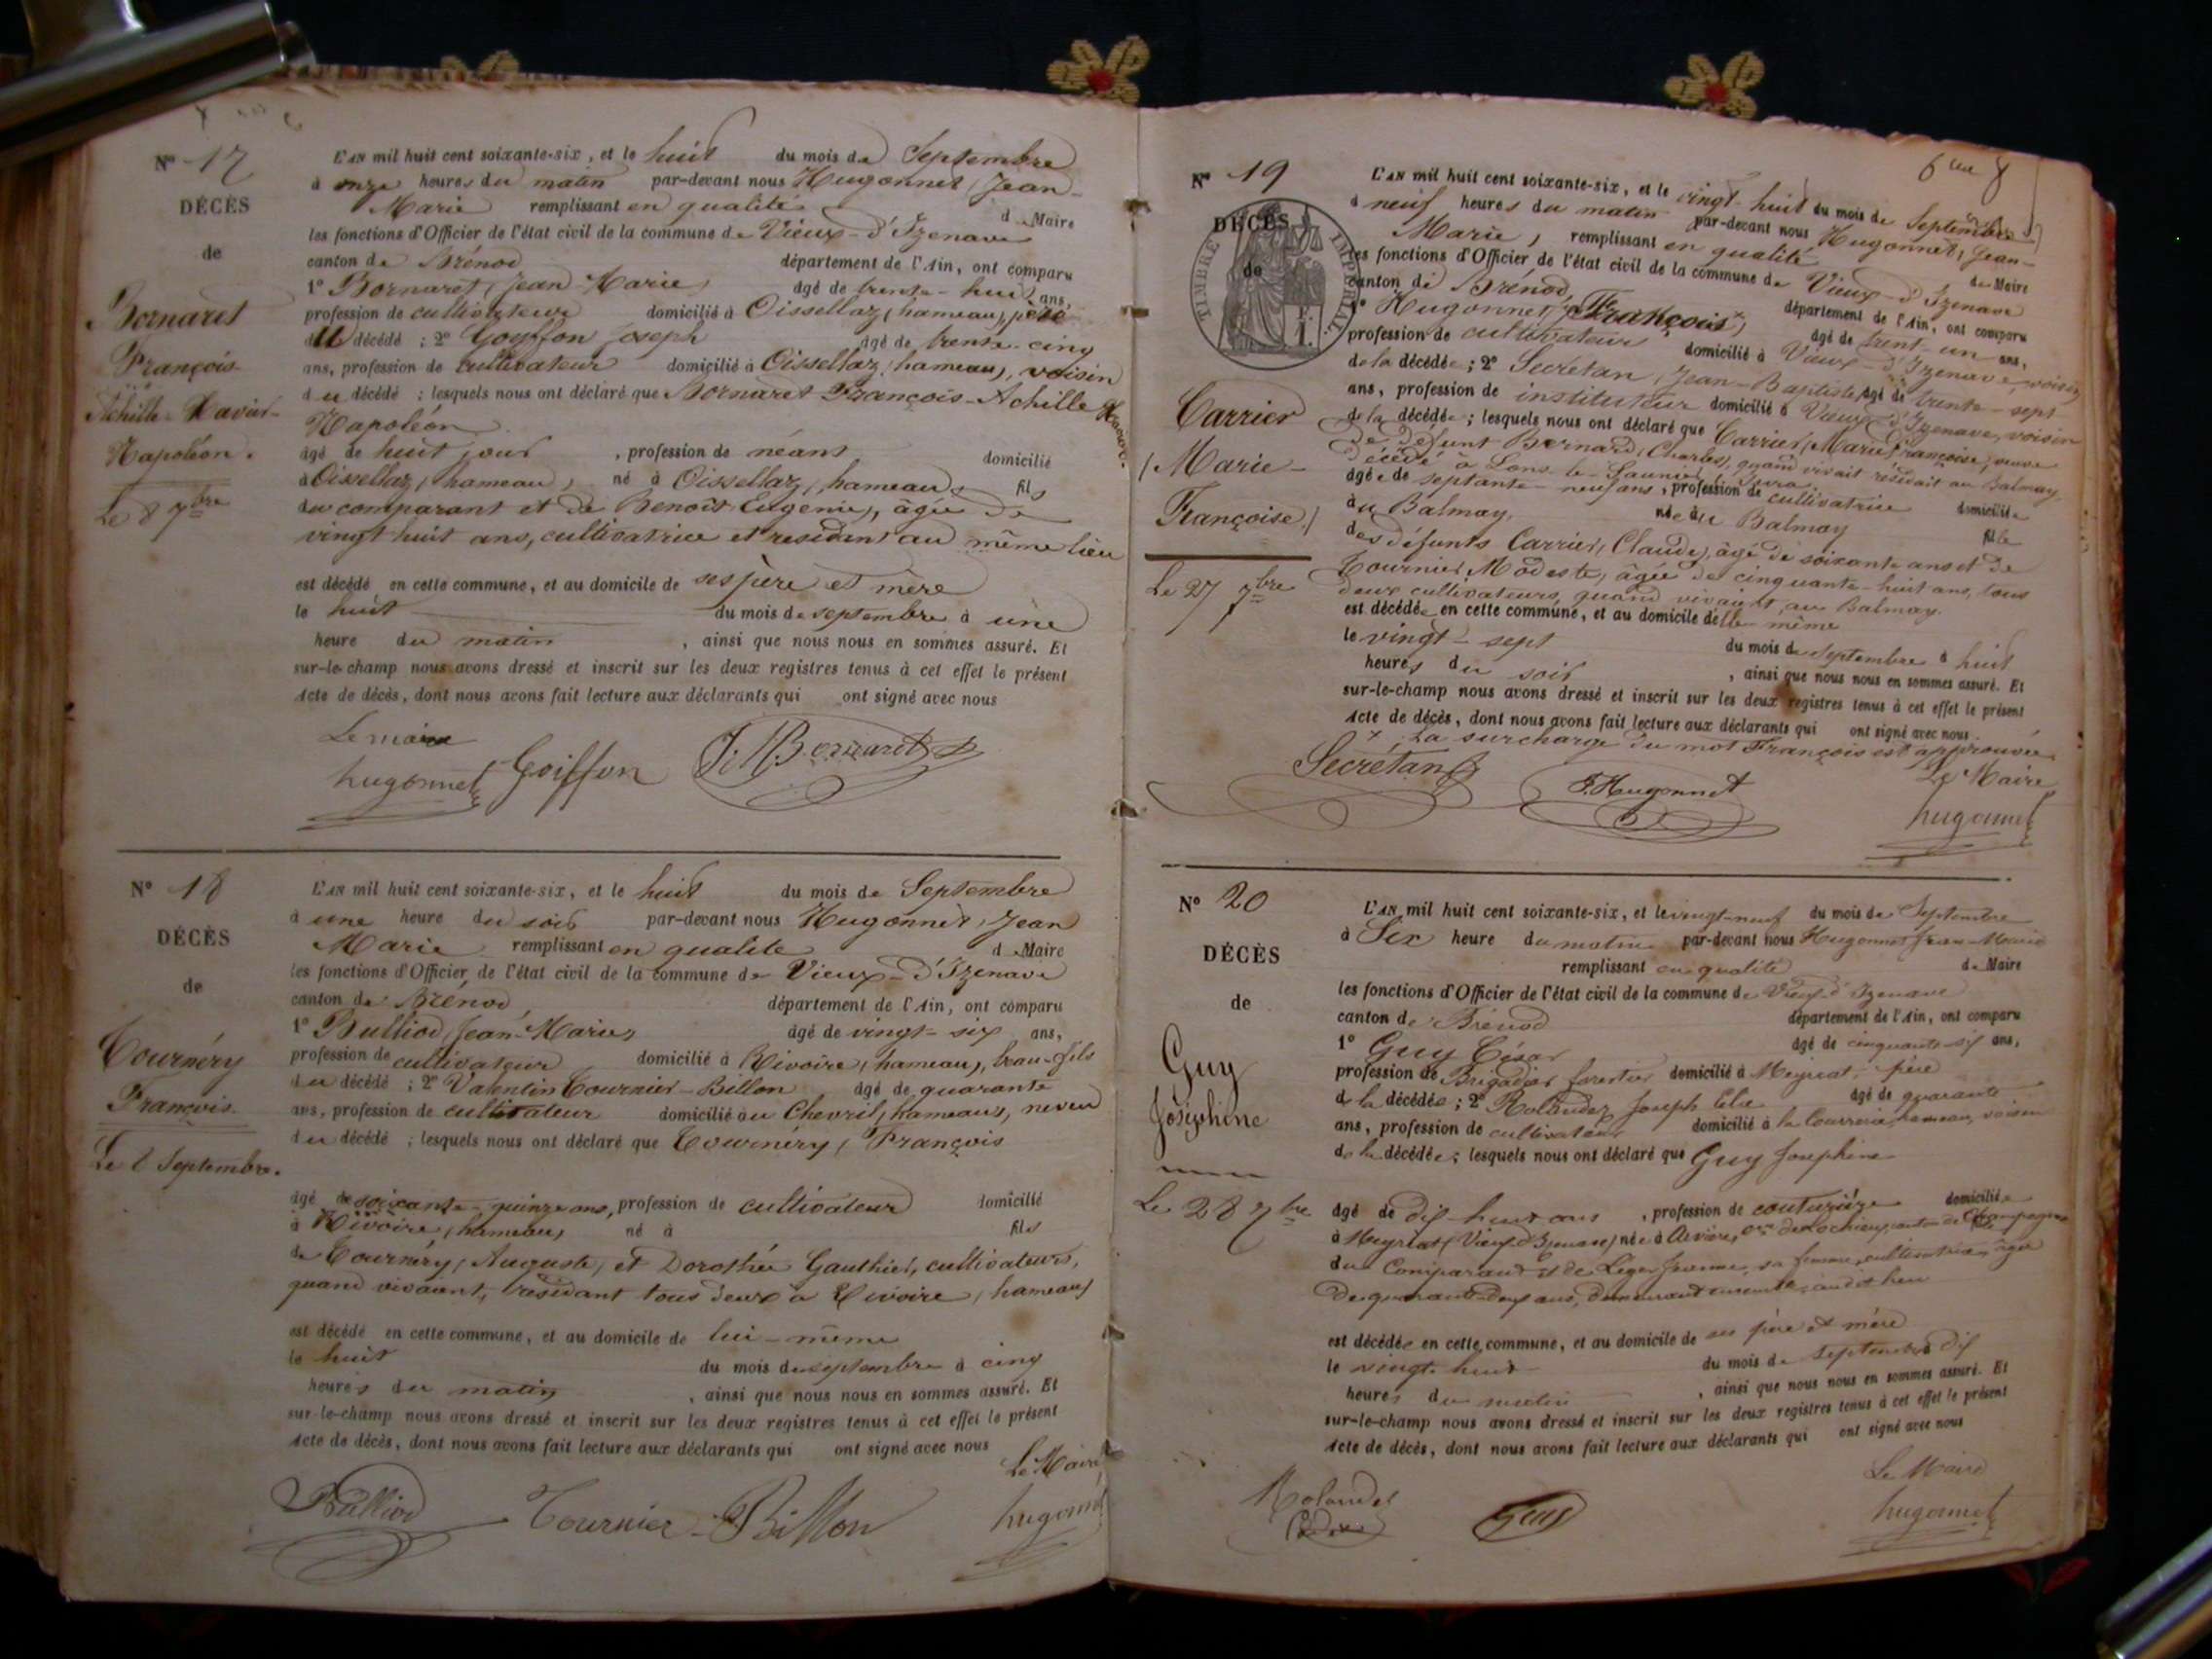 N° 17
DÉCÈS
de
Bornaret
François
Achille Xavier
Napoléon.
Le 8 7bre
L'AN mil huit cent soixante-six, et le huit du mois de Septembre
à onze heures du matin par-devant nous Hugonnet, Jean
Marie remplissant en qualité de Maire
les fonctions d'Officier de l'état civil de la commune de Vieux-d'Izenave
canton de Brénod département de l'Ain, ont comparu
1° Bornaret, Jean-Marie, âgé de trente-huit ans,
profession de cultivateur domicilié à Oissellaz, hameau, père
du décédé ; 2° Goyffon Joseph âgé de trente-cinq
ans, profession de cultivateur domicilié à Oissellaz, hameau, voisin
du décédé ; lesquels nous ont déclaré que Bornaret François-Achille Xavier-
Napoléon
âgé de huit jours, profession de néant domicilié
à Oissellaz, hameau, né à Oissellaz, hameau, fils
du comparant et de Benoît Eugénie, âgée de
vingt huit ans, cultivatrice et residant au même lieu
est décédé en cette commune, et au domicile de ses père et mère
le huit du mois de septembre à une
heure du matin, ainsi que nous nous en sommes assuré. Et
sur-le-champ nous avons dressé et inscrit sur les deux registres tenus à cet effet le présent
Acte de décès, dont nous avons fait lecture aux déclarants qui ont signé avec nous
Le maire
hugonnet Goiffon J. M. Bornaret
N° 18
DÉCÈS
de
Tournéry
François
Le 8 Septembre.
L'AN mil huit cent soixante-six, et le huit du mois de Septembre
à une heure du soir par-devant nous Hugonnet, Jean
Marie remplissant en qualité de Maire
les fonctions d'Officier de l'état civil de la commune de Vieux-d'Izenave
canton de Brénod département de l'Ain, ont comparu
1° Bulliod, Jean-Marie, âgé de vingt-six ans,
profession de cultivateur domicilié à Rivoire, hameau, beau-fils
du décédé ; 2° Valentin Tournier-Billon âgé de quarante
ans, profession de cultivateur domicilié au Chevril, hameaux, neveu
du décédé ; lesquels nous ont déclaré que Tournéry, François
âgé de soixante-quinze ans, profession de cultivateur domicilié
à Rivoire, hameau, né à fils
de Tournéry, Auguste, et Dorothée Gauthier, cultivateurs,
quand vivaient, résidant tous deux à Rivoire, hameau,
est décédé en cette commune, et au domicile de lui-même
le huit du mois de septembre à cinq
heures du matin, ainsi que nous nous en sommes assuré. Et
sur-le-champ nous avons dressé et inscrit sur les deux registres tenus à cet effet le présent
Acte de décès, dont nous avons fait lecture aux déclarants qui ont signé avec nous
Le Maire
Bulliod Tournier-Billon hugonnet
N° 19
DÉCÈS
de
TIMBRE IMPÉRIAL.
Carrier
Marie-
Françoise,
Le 27 7bre
L'AN mil huit cent soixante-six, et le vingt-huit du mois de Septembre
à neuf heures du matin par-devant nous Hugonnet, Jean-
Marie, remplissant en qualité de Maire
les fonctions d'Officier de l'état civil de la commune de Vieux-d'Izenave
canton de Brénod département de l'Ain, ont comparu
1° Hugonnet, François, âgé de trent-un ans,
profession de cultivateur domicilié à Vieux-d'Izenave, voisin
de la décédée ; 2° Secrétan, Jean-Baptiste, âgé de trente-sept
ans, profession de instituteur domicilié à Vieux d'Izenave, voisin
de la décédée ; lesquels nous ont déclaré que Carrier, Marie-Françoise, veuve
de défunt Bernard, Charles, quand vivait résidait au Balmay,
décédé à Lons-le-Saunier, Jura
âgée de septante-neuf ans, profession de cultivatrice domiciliée
au Balmay, née au Balmay fille
des défunts Carrier, Claude, âgé de soixante ans et de
Tournier, Modeste, âgée de cinquante-huit ans, tous
deux cultivateurs, quand vivaient au Balmay.
est décédée en cette commune, et au domicile d'elle-même
le vingt-sept du mois de Septembre à huit
heures du soir, ainsi que nous nous en sommes assuré. Et
sur-le-champ nous avons dressé et inscrit sur les deux registres tenus à cet effet le présent
Acte de décès, dont nous avons fait lecture aux déclarants qui ont signé avec nous.
+ La surcharge du mot François est approuvée
Le Maire
Secrétan F. Hugonnet hugonnet
N° 20
DÉCÈS
de
Guy
Joséphine
Le 28 7bre
L'AN mil huit cent soixante-six, et le vingt-neuf du mois de Septembre
à Six heure du matin par-devant nous Hugonnet Jean-Marie
remplissant en qualité de Maire
les fonctions d'Officier de l'état civil de la commune de Vieux d'Izenave
canton de Brénod département de l'Ain, ont comparu
1° Guy César âgé de cinquante-six ans,
profession de Brigadier forestier domicilié à Meyriat, père
de la décédée ; 2° Rolandez Joseph Elie âgé de quarante
ans, profession de cultivateur domicilié à la Courrerie hameau, voisin
de la décédée ; lesquels nous ont déclaré que Guy Joséphine
âgé de dix-huit ans, profession de couturière domiciliée
à Meyriat (Vieux d'Izenave) née à Arvière, de Lochieu, canton de Champagne
du Comparant et de Léger Jeanne, sa femme, cultivatrice, âgée
de quarante-deux ans, demeurant ensemble audit lieu
est décédée en cette commune, et au domicile de ses père et mère
le vingt-huit du mois de Septembre à dix
heures du matin, ainsi que nous nous en sommes assuré. Et
sur-le-champ nous avons dressé et inscrit sur les deux registres tenus à cet effet le présent
Acte de décès, dont nous avons fait lecture aux déclarants qui ont signé avec nous
Le Maire
Rolandez Guy hugonnet